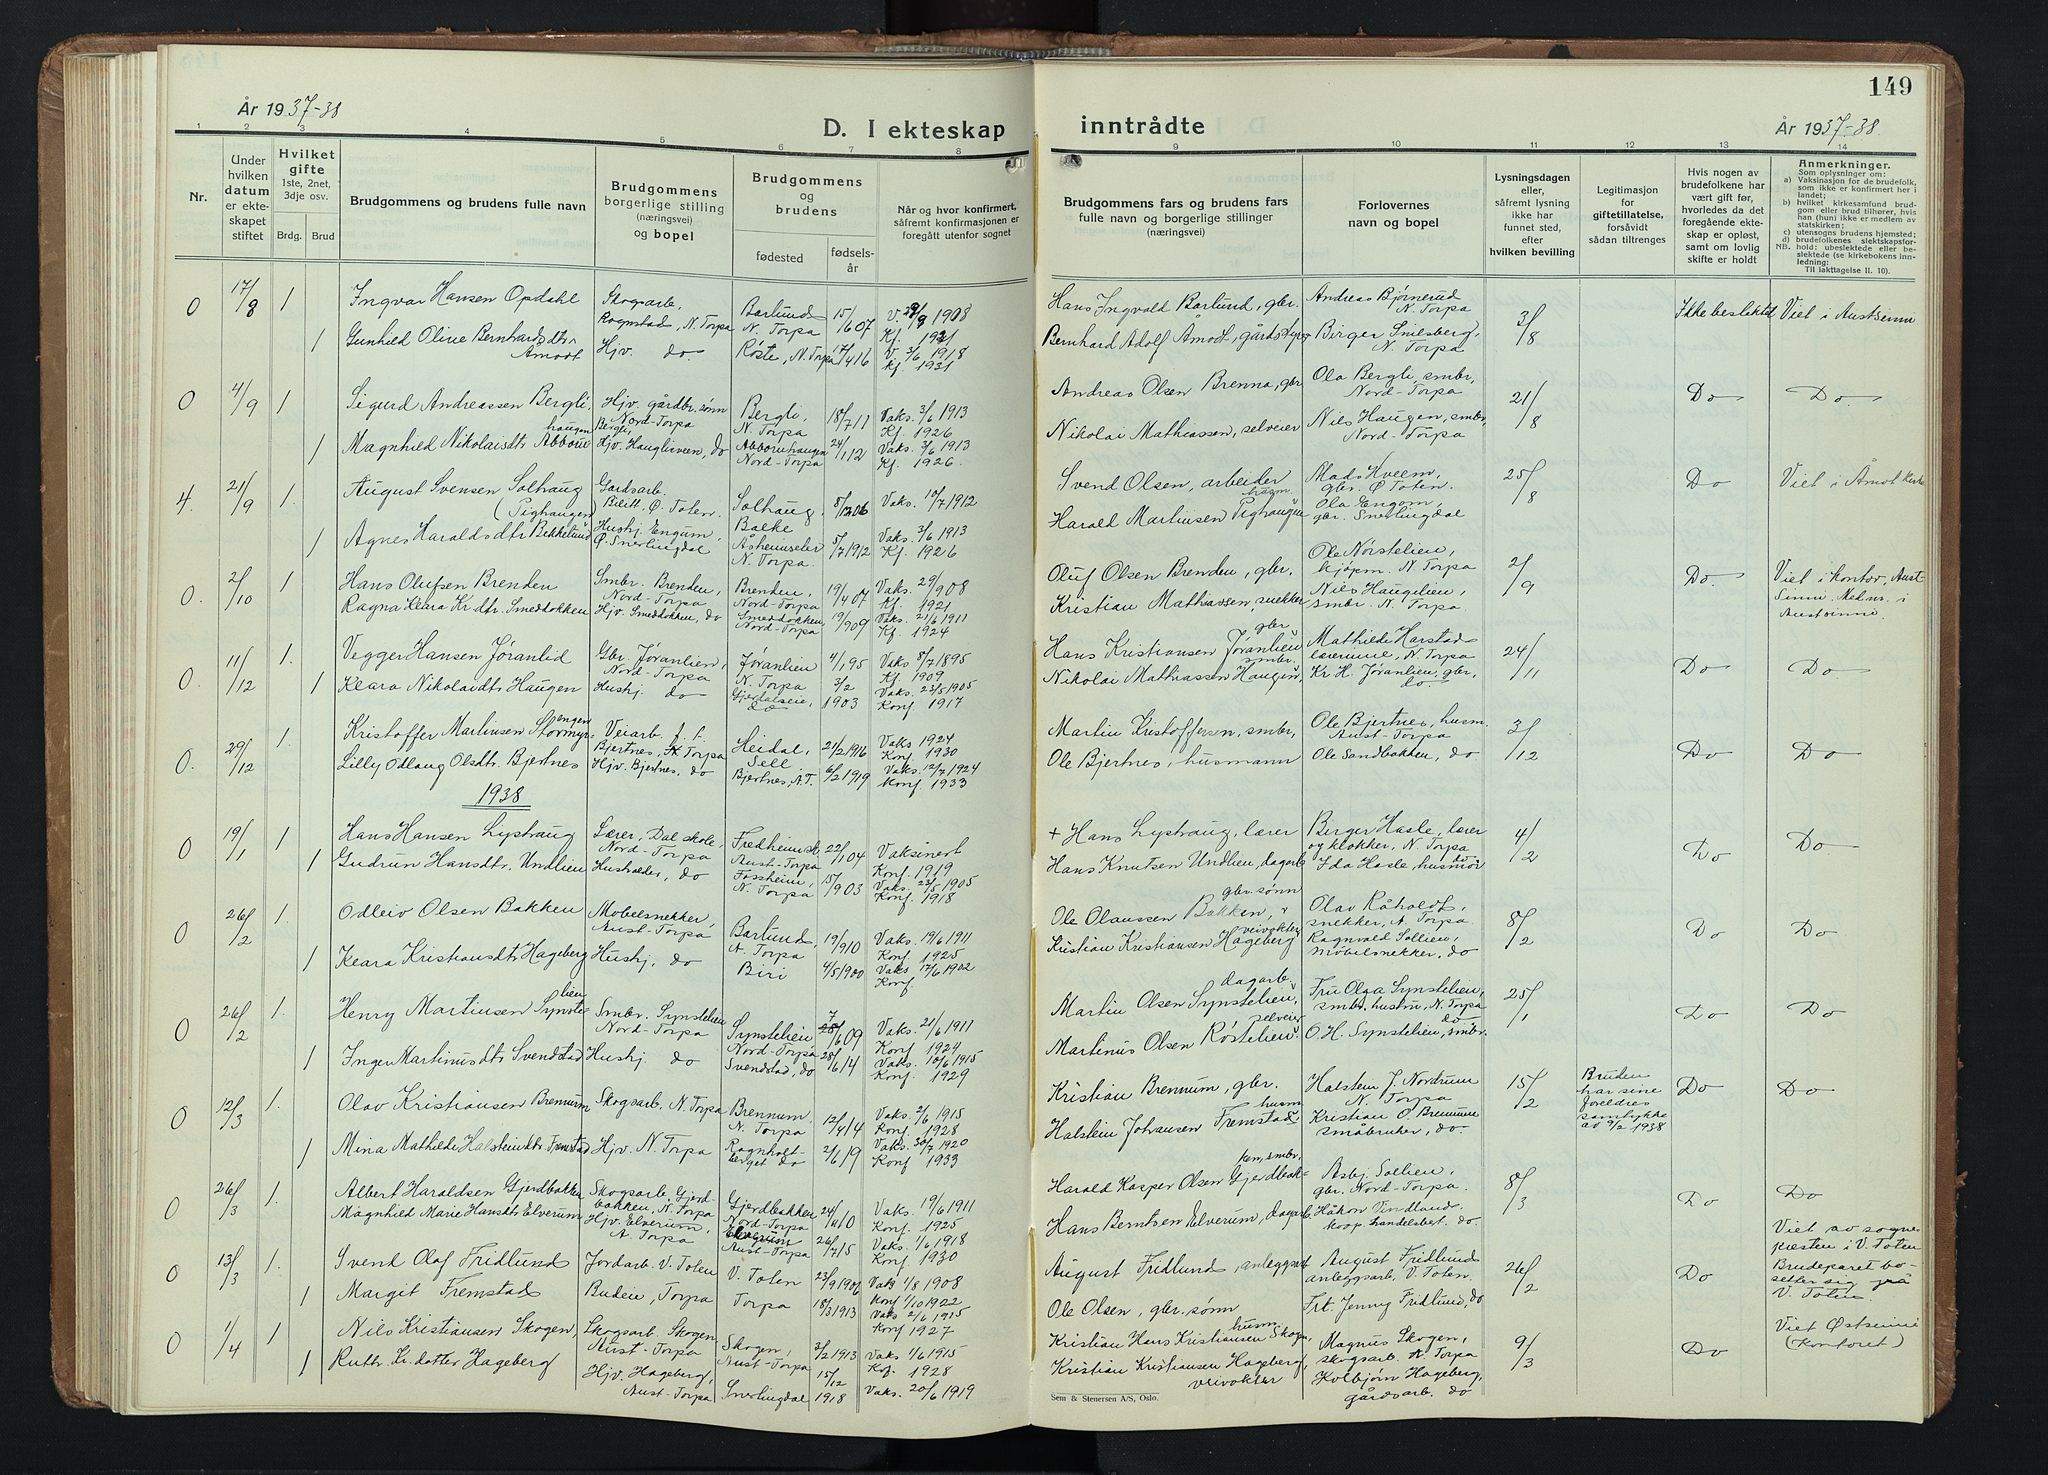 149
År 1937-38
D. I ekteskap inntrådte
År 1937-38.
1 2 3 4 5 6 7 8 9 10 11 12 13 14
Nr.
Under hvilken datum er ekteskapet stiftet
Hvilket gifte 1ste, 2net, 3dje osv.
Brdg. Brud
Brudgommens og brudens fulle navn
Brudgommens borgerlige stilling (næringsvei) og bopel
Brudgommens og brudens
fødested
fødselsår
Når og hvor konfirmert, såfremt konfirmasjonen er foregått utenfor sognet
Brudgommens fars og brudens fars fulle navn og borgerlige stillinger (næringsvei)
Forlovernes navn og bopel
Lysningsdagen eller, såfremt lysning ikke har funnet sted, efter hvilken bevilling
Legitimasjon for giftetillatelse, forsåvidt sådan tiltrenges
Hvis nogen av brudefolkene har vært gift før, hvorledes da det foregående ekteskap er opløst, samt om lovlig skifte er holdt
Anmerkninger.
Som oplysninger om:
a) Vaksinasjon for de brudefolk, som ikke er konfirmert her i landet;
b) hvilket kirkesamfund brudgom eller brud tilhører, hvis han (hun) ikke er medlem av statskirken;
c) utensogns brudens hjemsted;
d) brudefolkenes slektskapsforhold: ubeslektede eller beslektede (se kirkebokens innledning:
NB. Til iakttagelse II. 10).
0 17/8 1 Ingvar Hansen Opdahl Skogsarb. Rognstad, N. Torpa Barlund N. Torpa 15/6 07 V. 29/9 1908 Kf. 1921 Hans Ingvald Barlund, gbr. Andreas Bjørnerud N. Torpa 3/8 Ikke beslektet Viet i Austsinni
1 Gunhild Oline Bernhardsdtr. Åmodt Hjv. do Røste, N. Torpa 17/4 16 V. 3/6 1918 Kf. 1931 Bernhard Adolf Åmodt, gårdsstyrer Birger Snilsberg, N. Torpa
0 4/9 1 Sigurd Andreassen Bergli, Hjv. gårdbr. sønn Bergli, Nord-Torpa Bergli, N. Torpa 18/7 11 Vaks. 3/6 1913 Kf. 1926 Andreas Olsen Brenna, gbr. Ola Bergli, smbr, Nord-Torpa 21/8 Do Do
1 Magnhild Nikolaisdtr. Abborhaugen Hjv. Hauglirveen, do Abborhaugen Nord-Torpa 24/1 12 Vaks. 3/6 1913 Kf. 1926. Nikolai Mathiassen, selveier Nils Haugen, smbr, Nord-Torpa
4. 21/9 1. August Svensen Solhaug (Pighaugen) Gardsarb. Bilitt Ø. Toten Solhaug, Balke 8/12 06 Vaks. 10/7 1912 Svend Olsen, arbeider Mads Hveem, gbr. Ø Toten. 25/8 Do Viet i Åmot kirke
1 Agnes Haraldsdtr Bekkelund Hushj. Engum, Ø. Snertingdal Åshemseter N. Torpa 5/7 1912 Vaks. 3/6 1913 Kf. 1926 Harald Martinsen Pighaugen husm Ola Engom, gbr. Snertingdal
0. 2/10 1 Hans Olufsen Brenden Smbr. Brenden, Nord-Torpa Brenden, Nord-Torpa 19/4 07 Vaks. 29/9 08 Kf. 1921 Oluf Olsen Brenden, gbr. Ole Nørstelien, kjøpm. N. Torpa 2/9 Do. Viet i kontor, Aust Sinni. Medm. i Austsinni.
Ragna Klara Kr.dtr. Smeddokken Hjv. Smeddokken, do Smeddokken, Nord-Torpa 19/9 09 Vaks. 21/6 1911 Kf. 1924 Kristian Mathiassen, snekker Nils Haugelien, smbr. N. Torpa
0. 11/12 1. Vegger Hansen Jøranlid Gbr. Jøranlien, Nord-Torpa Jøranlien N. Torpa 4/1 95 Vaks 8/7 1895 Kf. 1909 Hans Kristiansen Jøranlien gbr Mathilde Harstad lærerinne, N. Torpa 24/11 Do Do
1 Klara Nikolaidtr Haugen Hushj. do Gjerdalseie, do 3/2 1903 Vaks. 23/5 1905 Konf 1917 Nikolai Mathiassen Haugen, smbr. Kr. H. Jøranlien, gbr, do.
0. 29/12 1. Kristoffer Martinsen Stormyrengen Veiarb. f. t. Bjertnes, A Torpa Heidal, Sell 21/2 1916 Vaks 1924 Konf 1930 Martin Kristoffersen, smbr, Ole Bjertnes, husm. Aust-Torpa 3/12 Do Do
Lilly Odlaug Olsdtr. Bjertnes Hjv. Bjertnes, do Bjertnes, A.T. 6/2 1919 Vaks. 12/7 1924 Konf. 1933 Ole Bjertnes, husmann Ole Sandbakken, do
1938
0 19/1 1 Hans Hansen Lystaug Lærer, Dal skole, Nord-Torpa Fredheim Aust-Torpa 22/1 04 Vaksinert Konf. 1919 + Hans Lystaug, lærer Birger Hasle, lærer og klokker, N. Torpa 4/2 Do Do
1 Gudrun Hansdtr. Undlien Husholder, do Fossheim, N. Torpa 15/9 03 Vaks. 23/5 1905 Konf. 1918 Hans Knutsen Undlien, dagarb Ida Hasle, husmor do
0 26/2 1. Odleiv Olsen Bakken Møbelsnekker, Aust-Torpa Barlund, A. Torpa 19/9 10 Vaks. 19/6 1911 Konf. 1925 Ole Olaussen Bakken, gbr. sønn Olav Råholdt, snekker, A. Torpa. 8/2 Do Do
1 Klara Kristiansdtr Hageberg Hushj. do Biri 4/5 1900 Vaks 17/6 1902 Konf. Kristian Kristiansen Hageberg veivokter Ragnvald Sollien, møbelsnekker, do
0 26/2 1. Henry Martinsen Synstelien Smbr. Synstelien Nord-Torpa Synstelien Nord-Torpa 7/6 09 Vaks. 21/6 1911 Konf 1924 Martin Olsen Synstelien, dagarb. Fru Olga Synstelien, smbr. hustru, N. Torpa 25/1 Do Do
1 Inger Martinusdtr Svendstad Hushj. do Svendstad, do 28/6 14 Vaks. 10/6 1915 Konf. 1929 Martinus Olsen Røstelien selveier O. H. Synstelien, smbr. do
0 12/3 1. Olav Kristiansen Brennum Skogsarb, N. Torpa Brennum N. Torpa. 12/4 14 Vaks. 2/6 1915 Konf. 1928 Kristian Brennum, gbr. Halstein J. Nordrum N. Torpa 15/2 Bruden har sine foreldres samtykke av 9/2 1938 Do Do
1 Mina Mathilde Halsteinsdtr. Fremstad Hjv. N. Torpa Ragnholtberget do 2/6 19 Vaks. 30/7 1920 Konf 1933 Halstein Johansen Fremstad, husm Kristian O. Brennum småbruker, do.
0 26/3 1. Albert Haraldsen Gjerdbakken Skogsarb. Gjerdbakken, N. Torpa Gjerdbakken Nord-Torpa 24/4 10 Vaks. 19/6 1911 Konf. 1925 Harald Kasper Olsen Gjerdbakken, smbr. Asbj. Sollien, gbr. Nord-Torpa. 8/3 Do Do
Magnhild Marie Hansdtr Elverum, Hjv. Elverum, A. Torpa Elverum Aust-Torpa 26/7 15 Vaks. 1/6 1918 Konf. 1930 Hans Berntsen Elverum, dagarb. Håkon Vindlund, koop. handelsbet. do.
0 13/3 1. Svend Olaf Fridlund Jordarb. V. Toten V. Toten 23/9 1906 Vaks 1/8 1908 Konf 1/10 1922 August Fridlund, anleggsarb August Fridlund anleggsarb, V. Toten. 26/2 Do Viet av sognepresten i V. Toten Brudeparet bosetter sig på V. Toten
1 Margit Fremstad Budeie, Torpa Torpa 18/3 1913 Vaks 2/6 1915 Konf 1927 Ole Olsen, gbr. sønn Frk. Jenny Fridlund, do
0 1/4 1 Nils Kristiansen Skogen, Skogsarb. Skogen, Aust-Torpa Skogen, Aust-Torpa 3/2 1913 Vaks 1/6 1915 Kof. 1928 Kristian Hans Kristiansen Skogen, husm. Magnus Skogen, skogsarb. A. Torpa 9/3 Do Viet Østsinni (Kontoret)
1 Ruth Kr. datter Hageberg Hjv. Hageberg, Aust-Torpa Snertingdal 15/12 1918 Vaks. 20/6 1919 Kristian Kristiansen Hageberg, veivokter Kolbjørn Hageberg, gårdsarb. do
Sem & Stenersen A/S, Oslo.